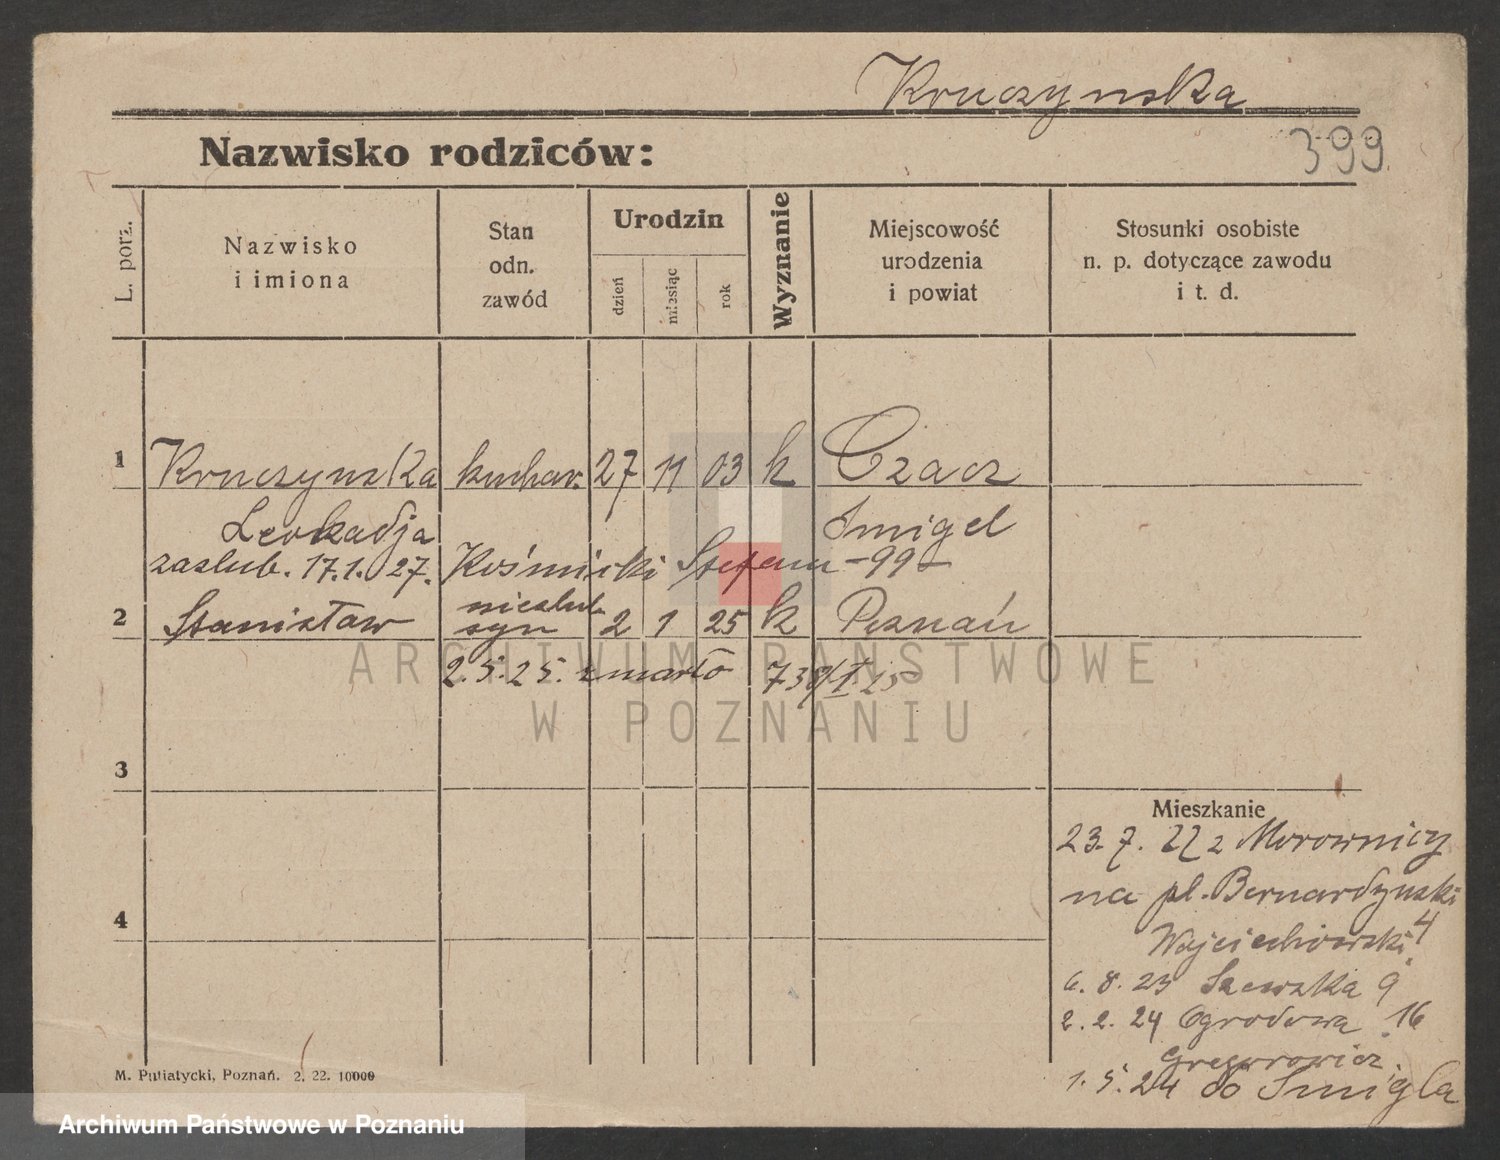 Kruczynska
399
Nazwisko rodziców:
L. porz.
Nazwisko
i imiona
Stan
odn.
zawód
Urodzin
dzień
miesiąc
rok
Wyznanie
Miejscowość
urodzenia
i powiat
Stosunki osobiste
n. p. dotyczące zawodu
i t. d.
1 Kruczynska kuchar. 27 11 03 k Czacz
Leokadja Smigel
zaslub. 17.1.27. Kośmicki Stefan -99-
2 Stanisław nieslub. syn 2 1 25 k Poznań
2.5.25. zmarło 738/I 25
ARCHIWUM PAŃSTWOWE
W POZNANIU
3
4
Mieszkanie
23.7.22 z Morownicy
na pl. Bernardynski 4
Wojciechowski.
6.8.23 Szewska 9
2.2.24 Ogrodowa 16
Gregorowicz
1.5.24 do Smigla
M. Putiatycki, Poznań. 2. 22. 10000
Archiwum Państwowe w Poznaniu